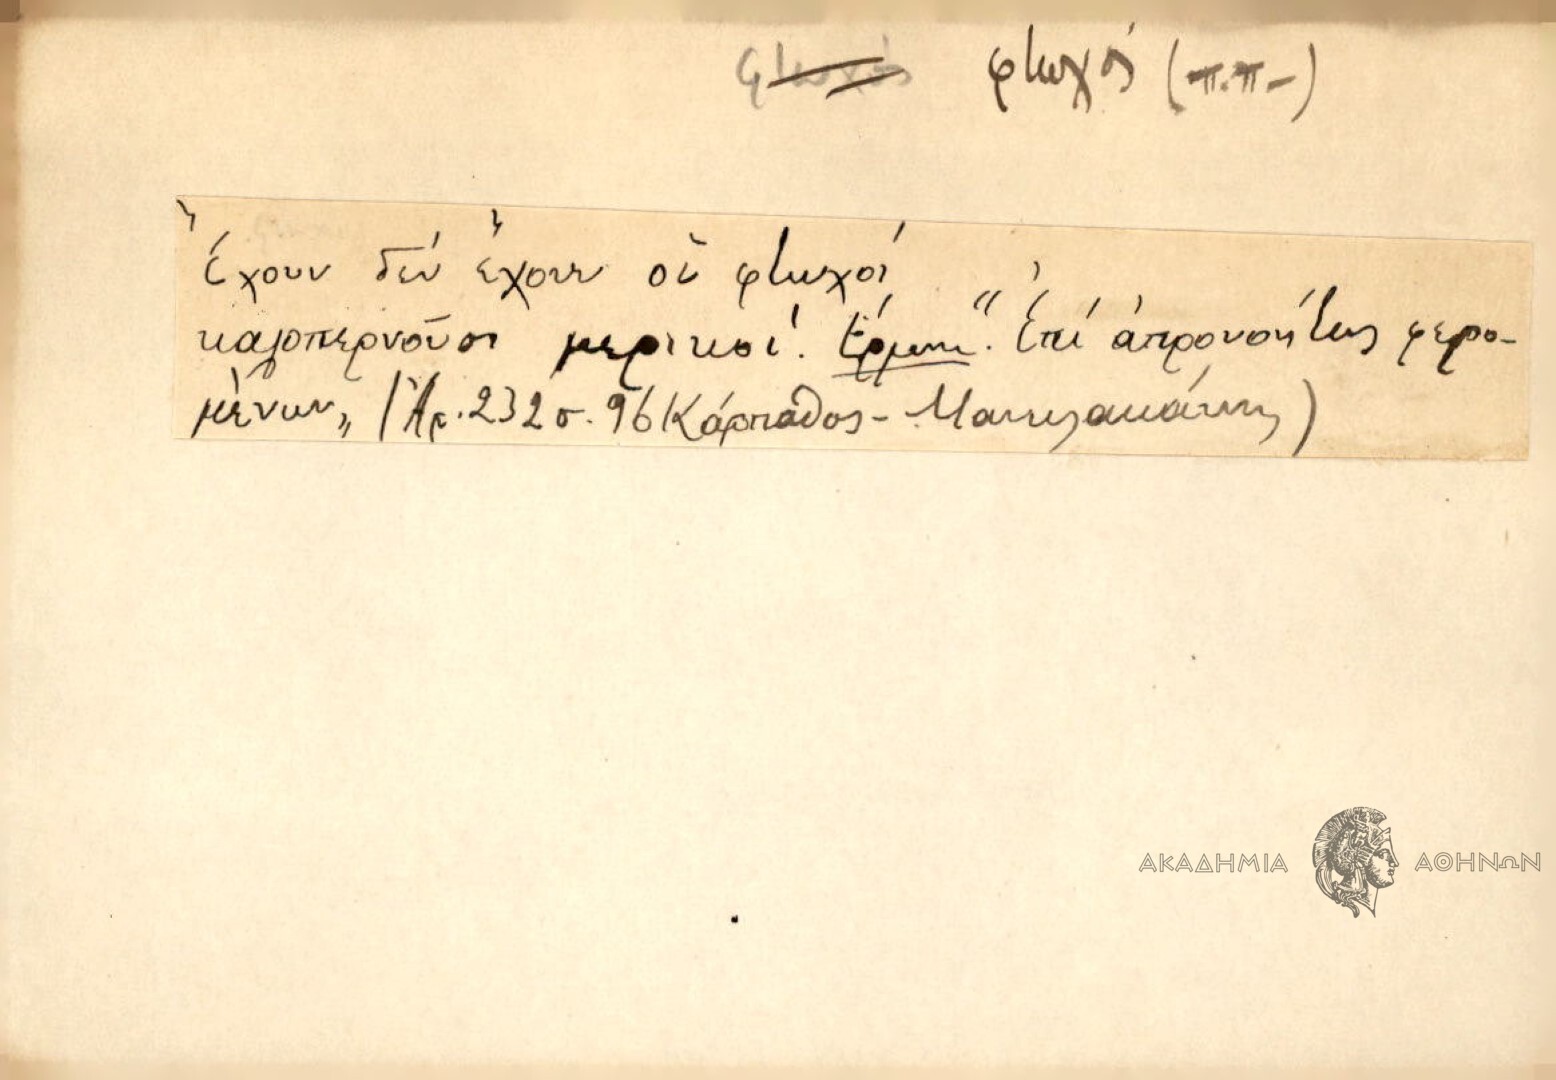 φτωχός φτωχός (π.π.-)
Ἔχουν δέν ἔχουν οἱ φτωχοί
καλοπερνοῦσι μερικοί. Ἑρμην. "Ἐπί ἀπρονοήτως φερο-
μένων„ (Ἀρ. 232 σ. 96 Κάρπαθος - Μανωλακάκης)
ΑΚΑΔΗΜΙΑ ΑΘΗΝΩΝ